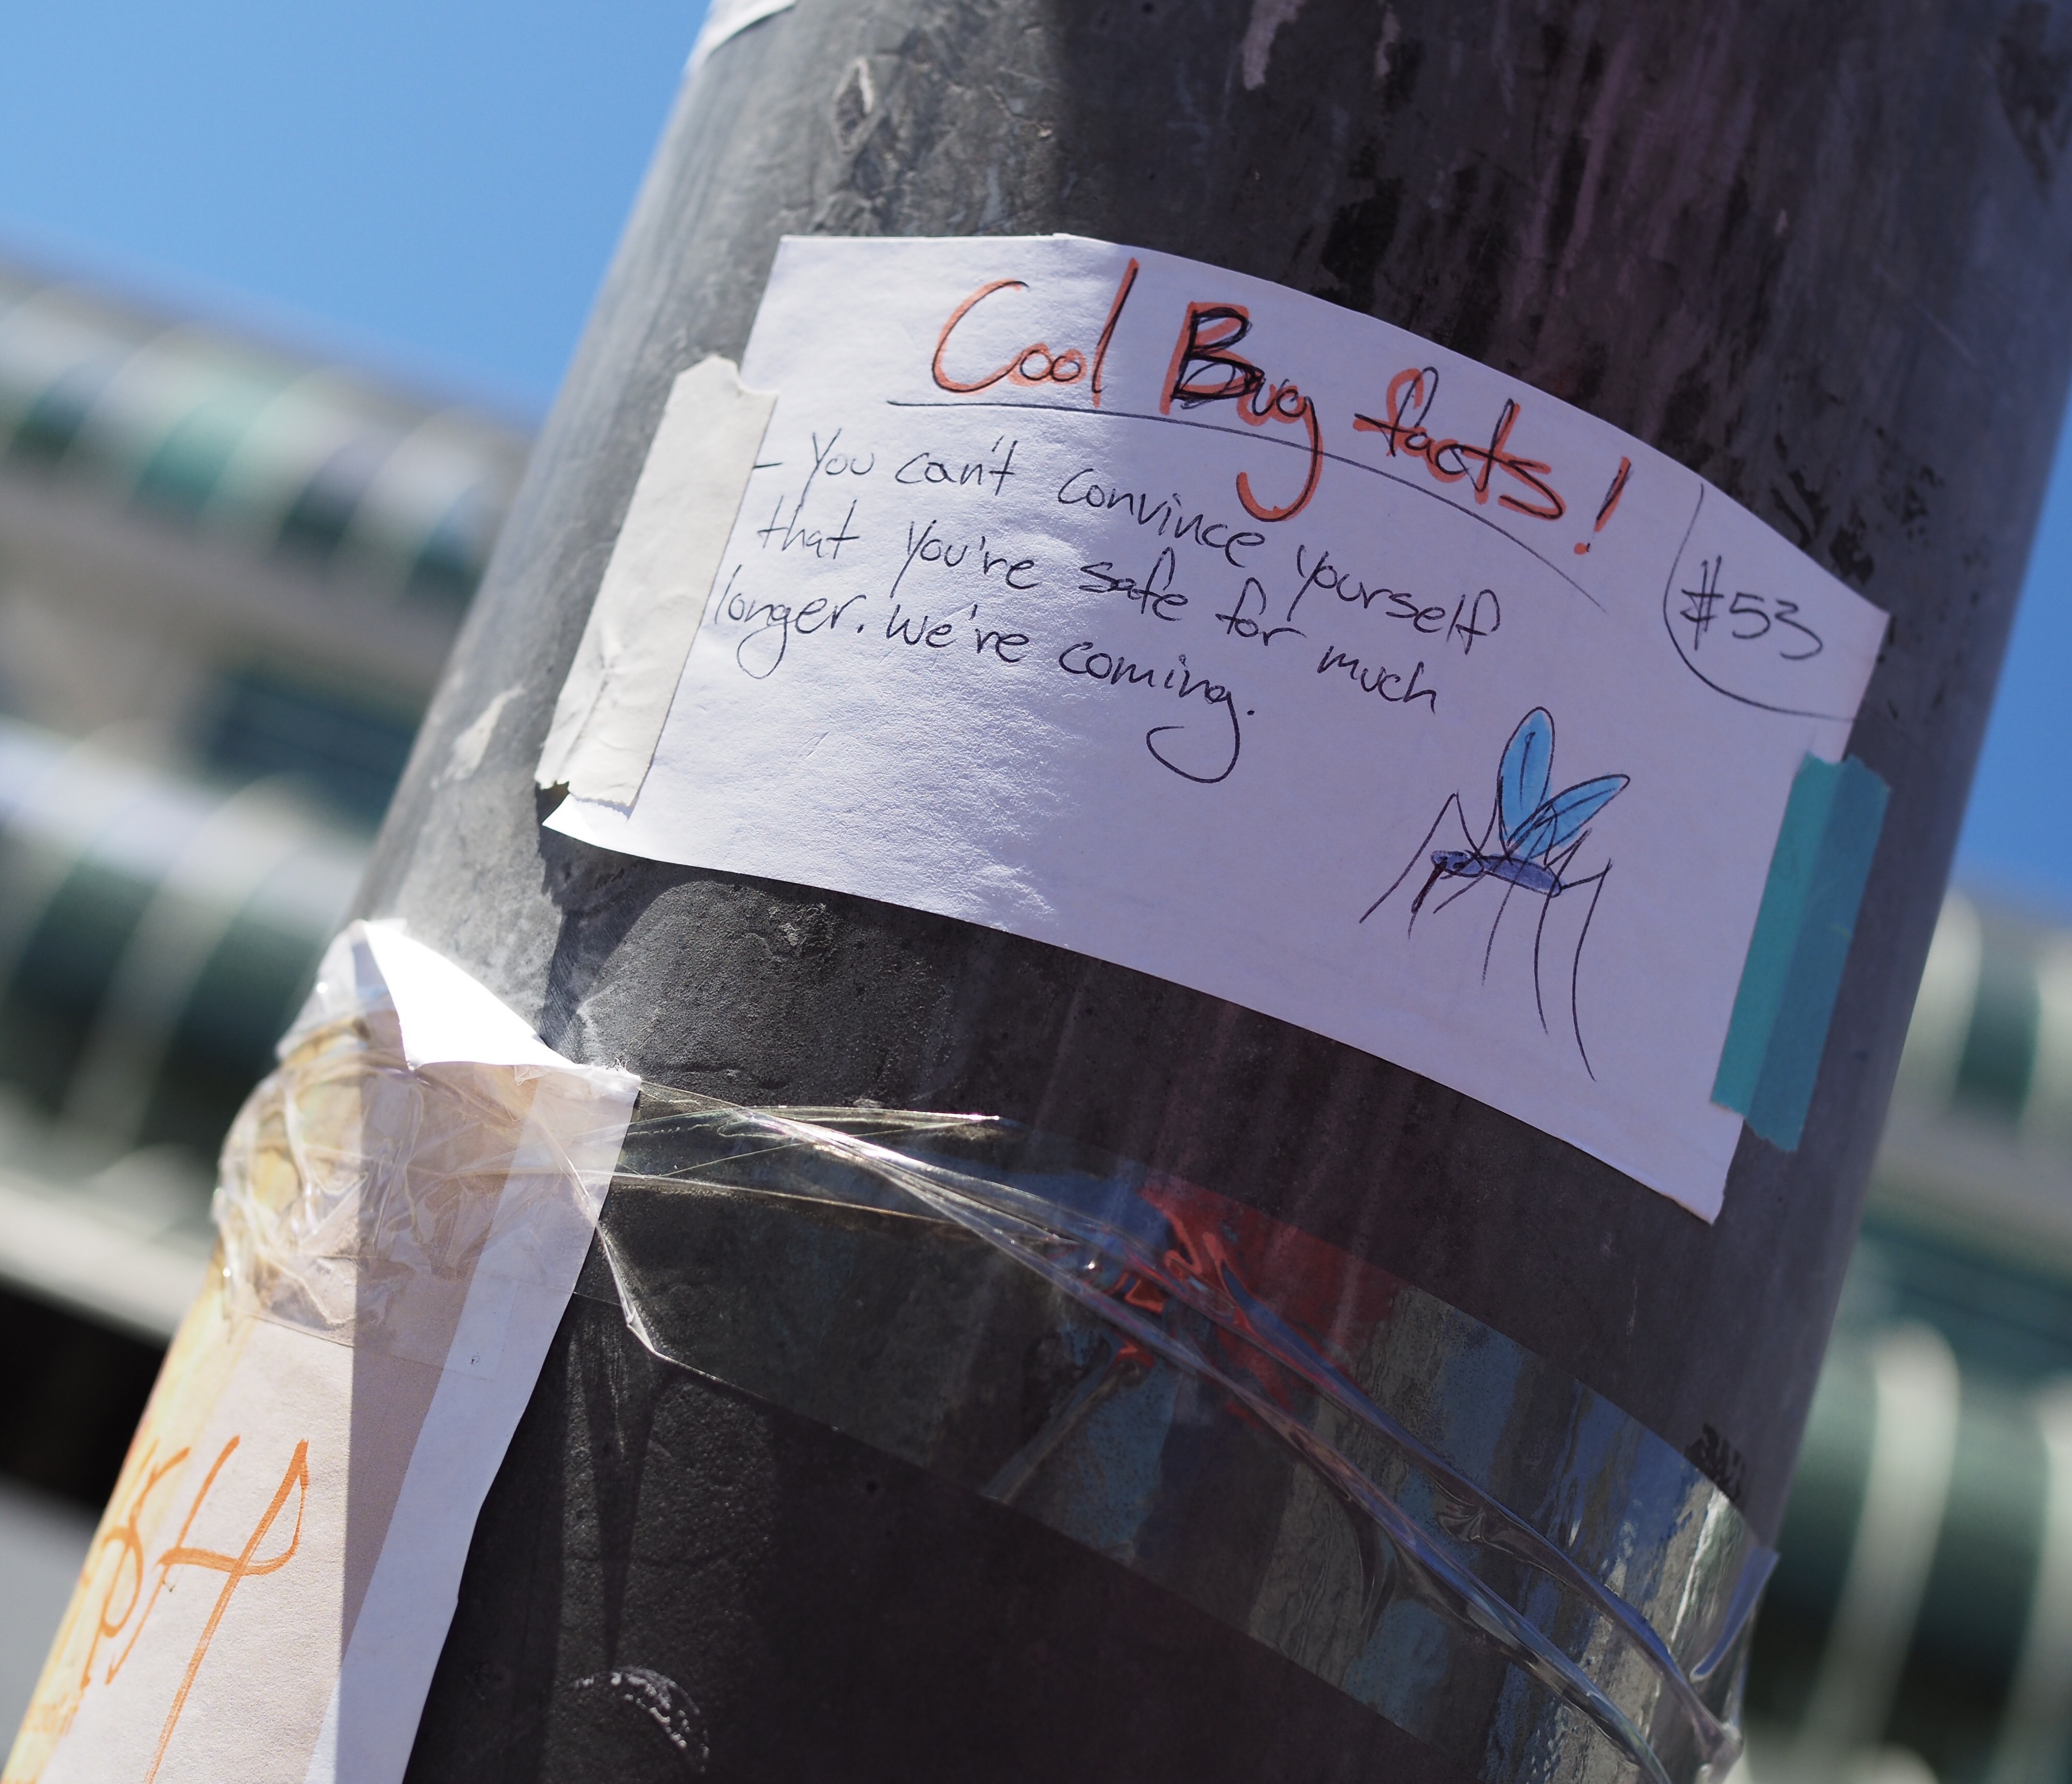 Cool Bug facts!
#53
- You can't convince yourself
that you're safe for much
longer. We're coming.